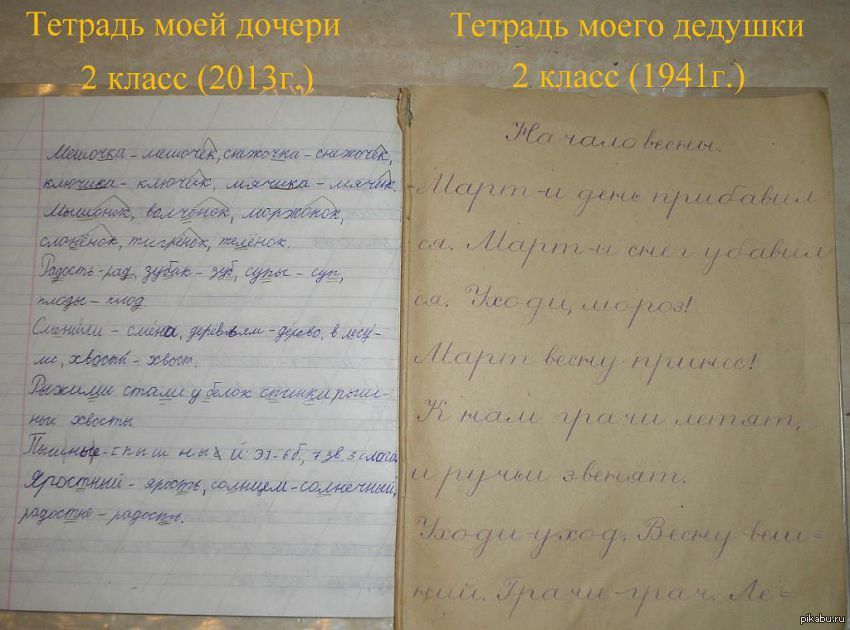 Тетрадь моей дочери
2 класс (2013г.)
Мешочка - мешочек, снежочка - снежочек,
ключика - ключик, мячика - мячик.
Мышонок, волчонок, моржонок,
слонёнок, тигрёнок, телёнок.
Радость - рад, зубик - зуб, супы - суп,
плоды - плод.
Сменили - смена, деревьям - дерево, в лесу -
хвосты - хвост.
Рыжими стали у белок спинки пыш-
ные хвосты
Пышные - 7 зв, 3 слога
Яростный - ярость, солнцем - солнечный,
радостно - радость.
Тетрадь моего дедушки
2 класс (1941г.)
Начало весны.
Март-и день прибавил
ся. Март-и снег убавил-
ся. Уходи, мороз!
Март весну принес!
К нам грачи летят,
и ручьи звенят.
Уходи-уход. Весну-веш=
ний. Грачи-грач. Ле=
pikabu.ru